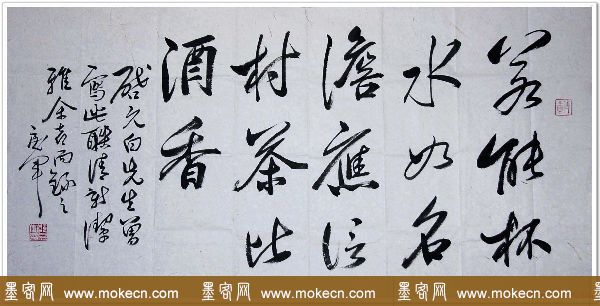 若能杯
水如名
澹應信
村茶比
酒香
啟元白先生曾
寫此聯清新潔
雅余喜而錄之
墨客网 www.mokecn.com 墨客网 www.mokecn.com 墨客网 www.mokecn.com